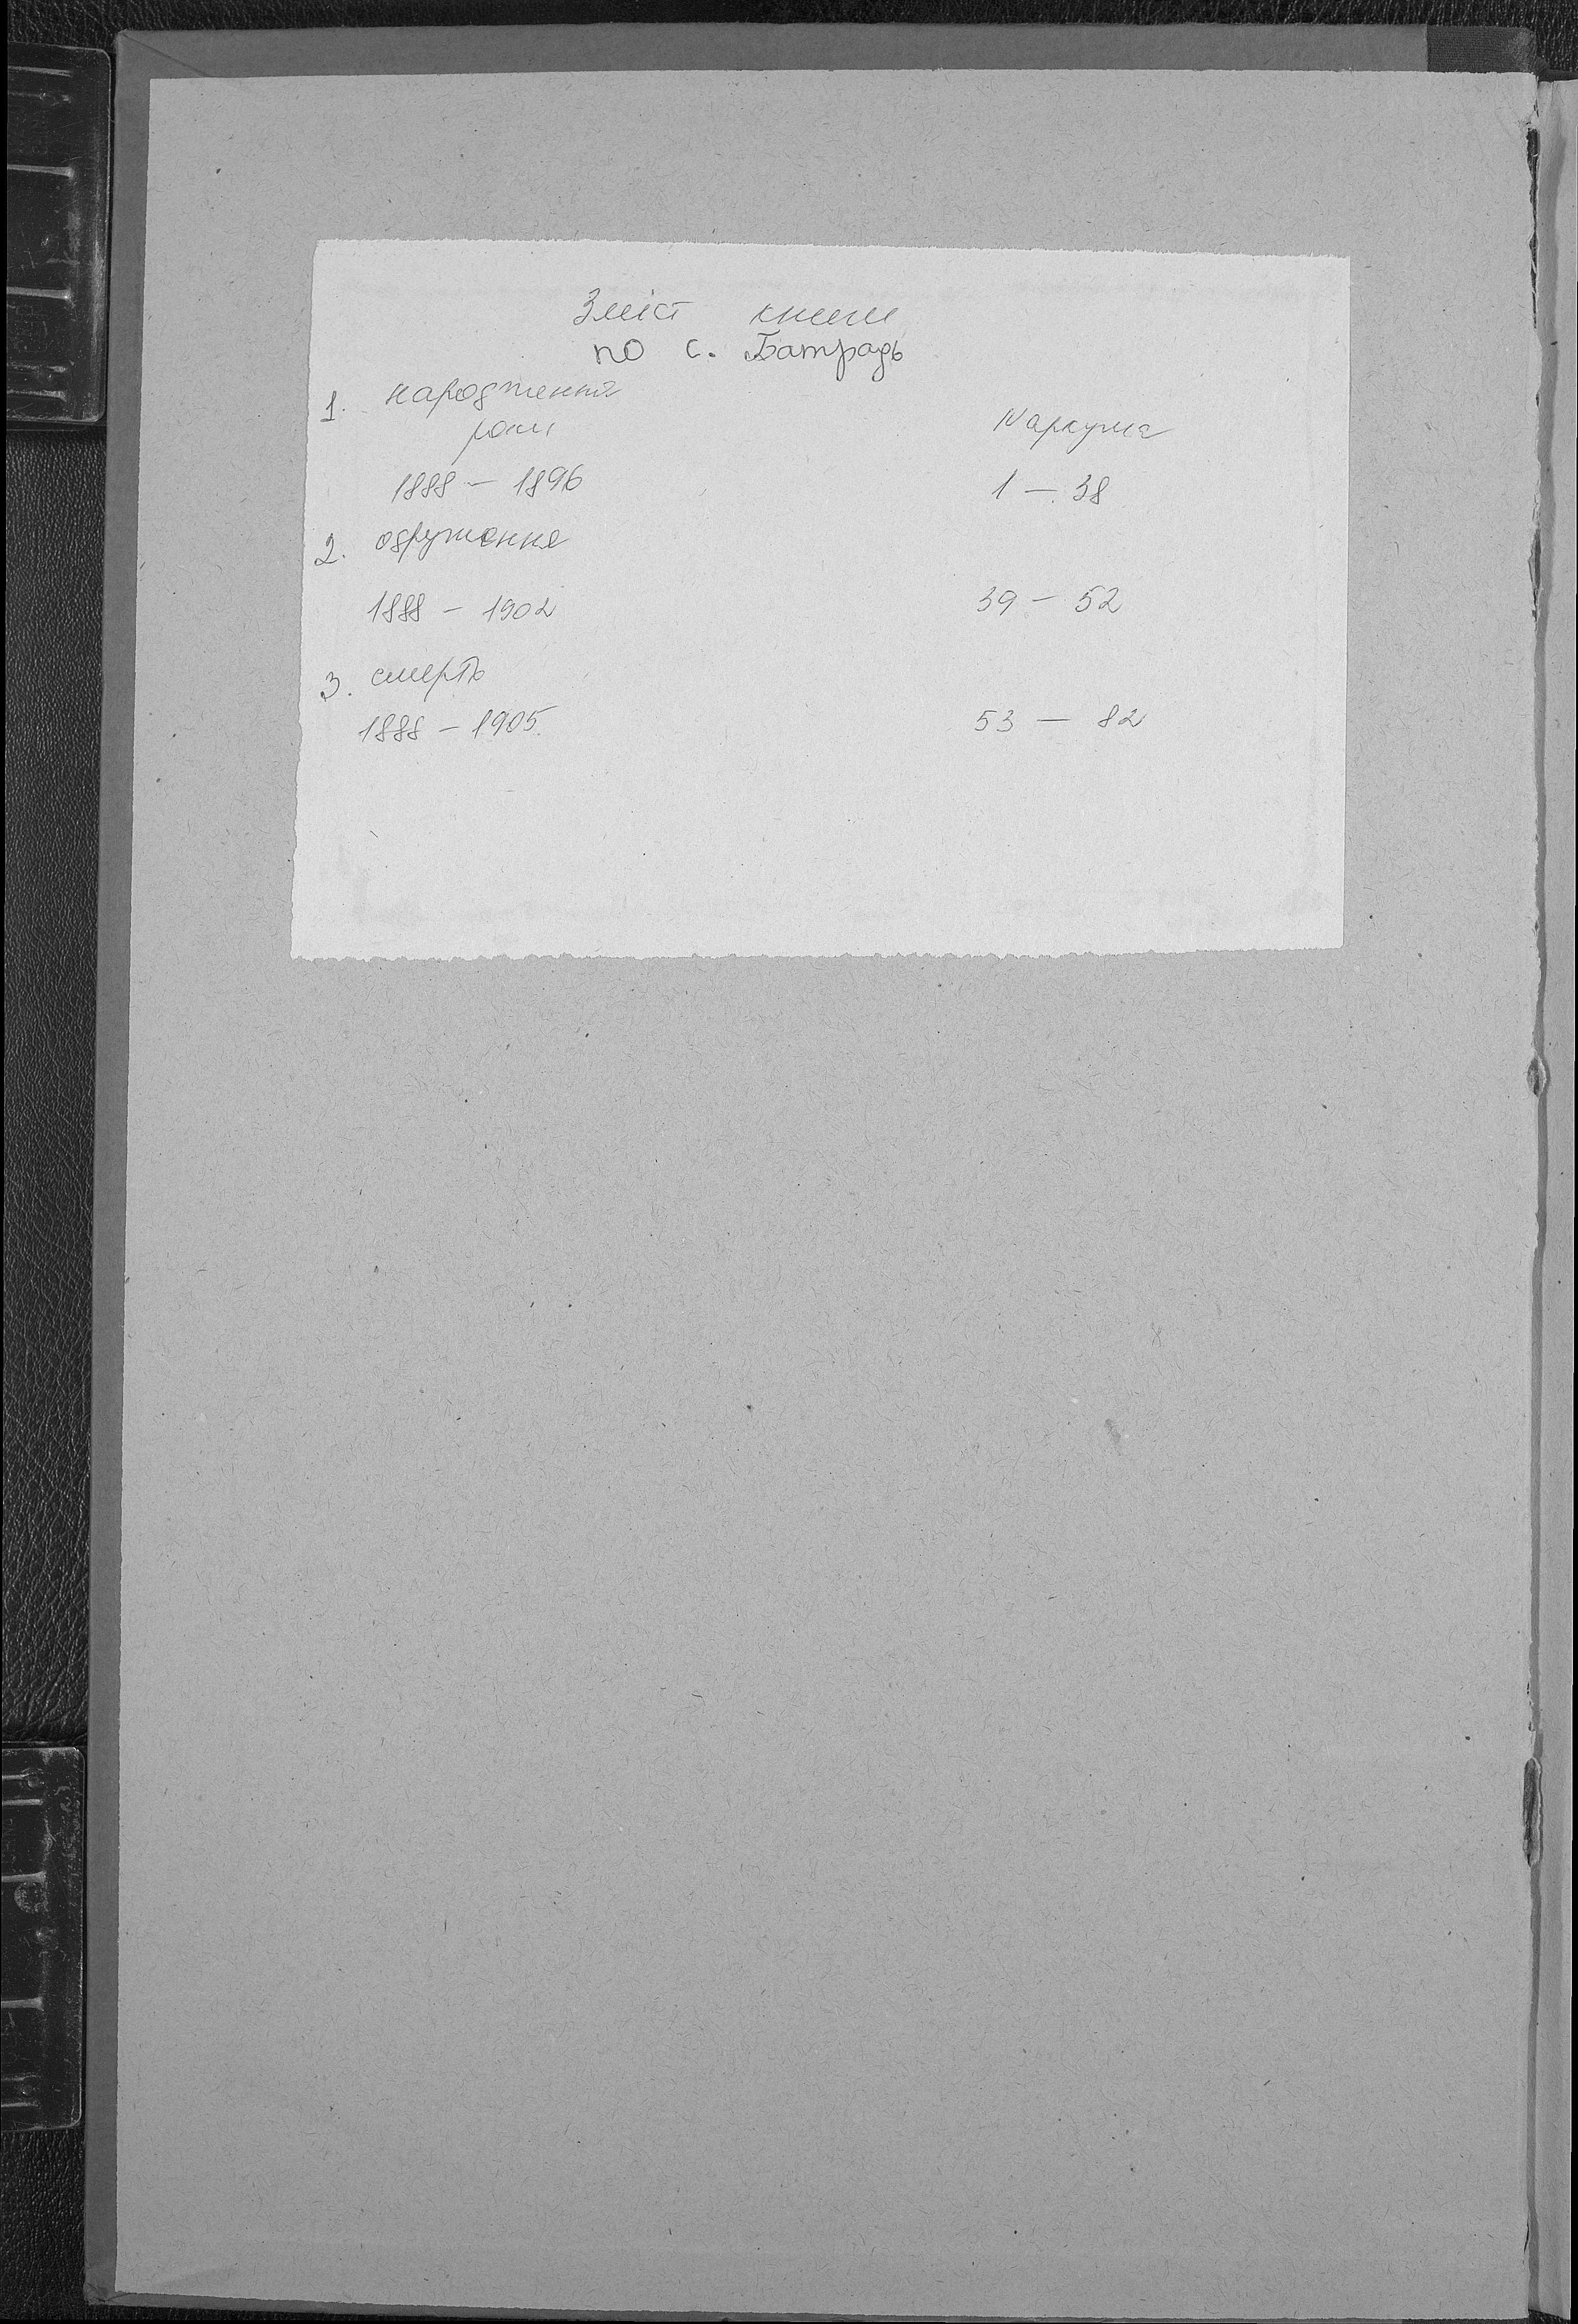 Зміст книги
по с. Батрадь
1. народження
роки № аркуша
1888 – 1896 1 – 38
2. одруження
1888 – 1902 39 – 52
3. смерть
1888 – 1905. 53 – 82